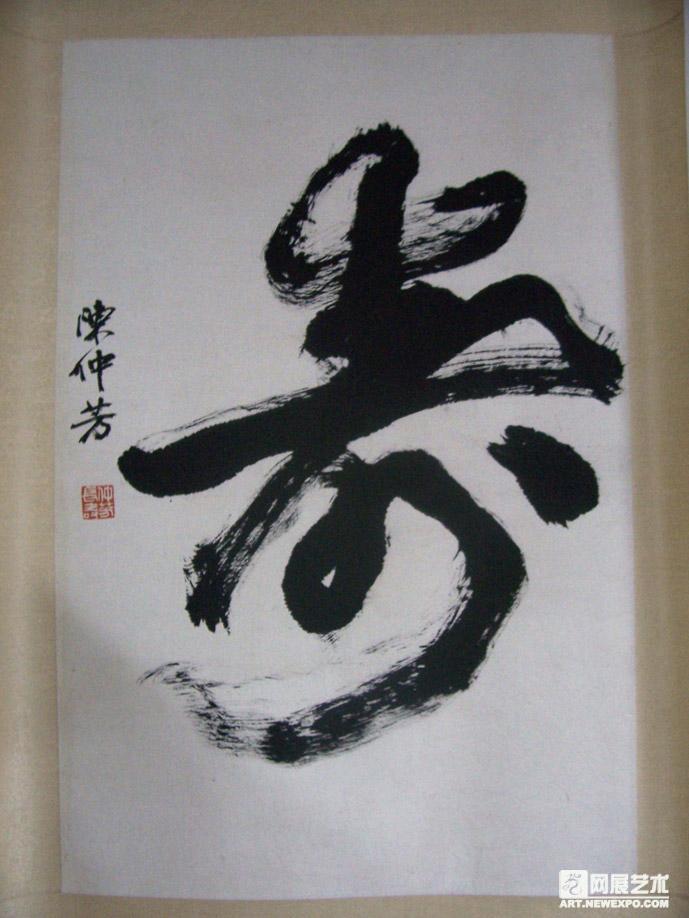 寿
陳仲芳
网展艺术
ART.NEWEXPO.COM